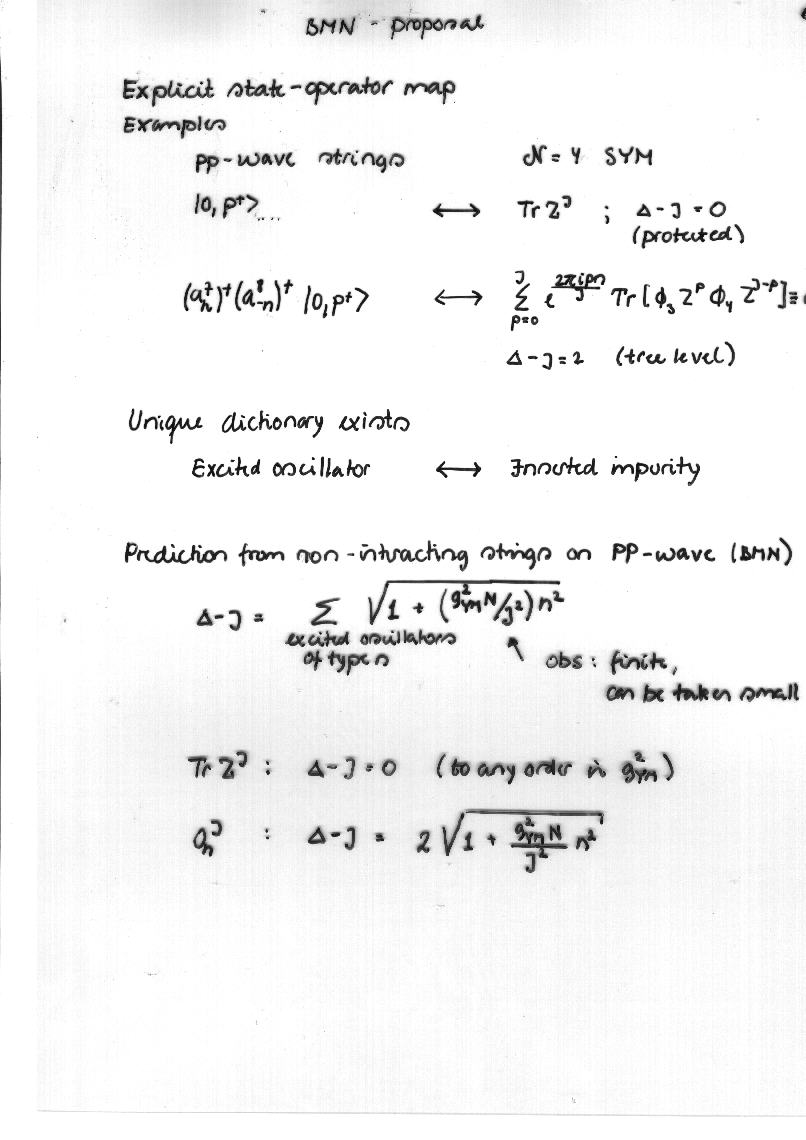 BMN - proposal
Explicit state-operator map
Examples
pp-wave strings N = 4 SYM
|0, p⁺> .... ⟷ Tr Z^J ; Δ-J = 0
(protected)
(a_n^7)^† (a_{-n}^8)^† |0, p⁺> ⟷ Σ_{p=0}^{J} e^{2πipn/J} Tr [ϕ_3 Z^p ϕ_4 Z^{J-p}] ≡
Δ-J = 2 (tree level)
Unique dictionary exists
Excited oscillator ⟷ Inserted impurity
Prediction from non-interacting strings on PP-wave (BMN)
Δ-J = Σ √(1 + (g²_{YM} N/J²) n²)
excited oscillators
of type n
↖ obs : finite,
can be taken small
Tr Z^J : Δ-J = 0 (to any order in g²_{YM})
O_n^J : Δ-J = 2 √(1 + \frac{g²_{YM} N}{J²} n²)